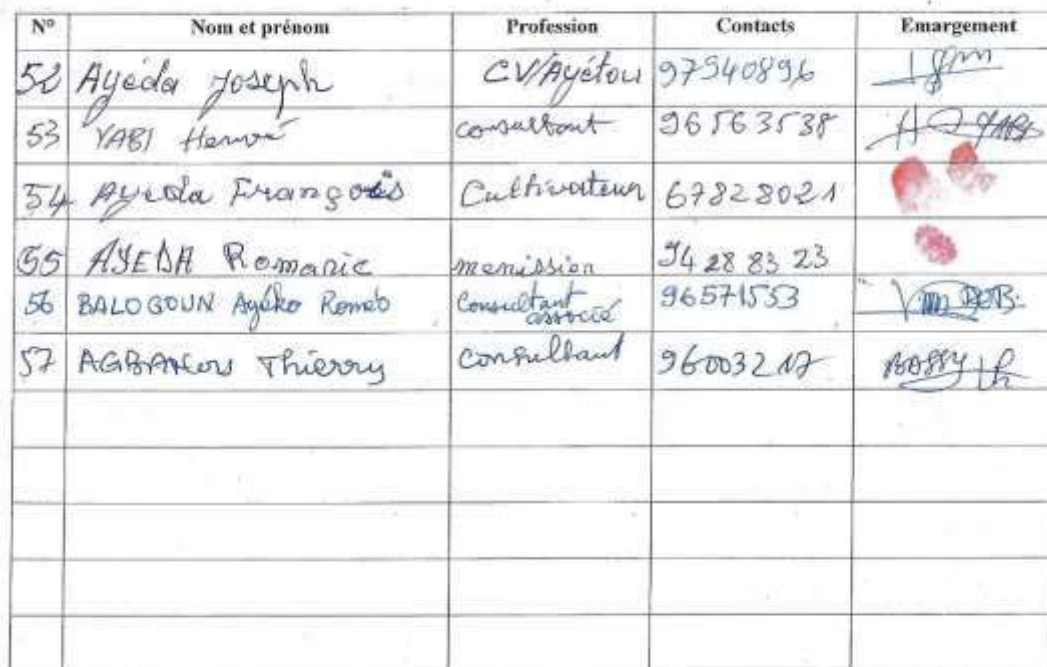 N° Nom et prénom Profession Contacts Emargement
52 Ayéda Joseph CV/Ayétou 97940896
53 YABI Hervé consultant 96563538
54 Ayeda François Cultivateur 67828021
55 AYEDA Romaric menission 94 28 83 23
56 BALOGOUN Ayéko Roméo Consultant associé 96571553
57 Thierry Consultant 96003217